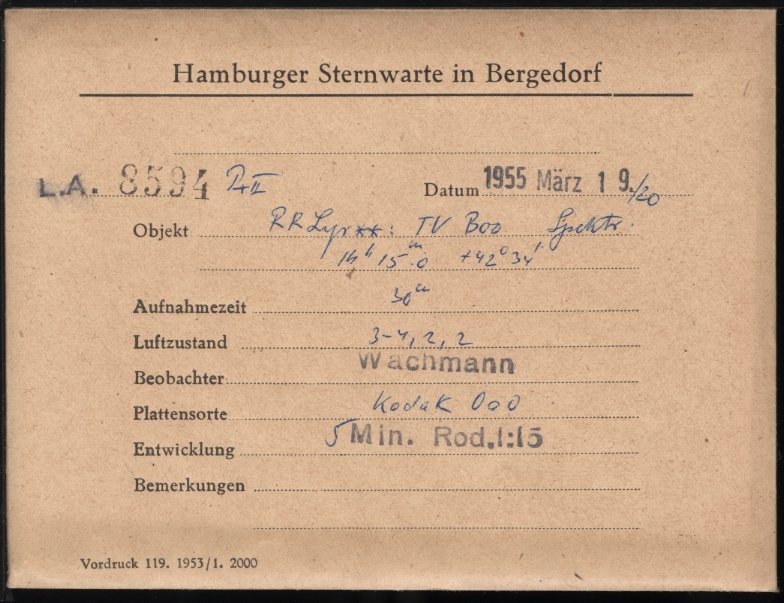 Hamburger Sternwarte in Bergedorf
L.A. 8594 Datum 1955 März 19./20
Objekt RR Lyr **: TV Boo Spektr.
14ʰ 15ᵐ.0 +42° 34'
Aufnahmezeit 30ᵐ
Luftzustand 3-4, 2, 2
Beobachter Wachmann
Plattensorte Kodak OaO
Entwicklung 5 Min. Rod.1:15
Bemerkungen
Vordruck 119. 1953/1. 2000